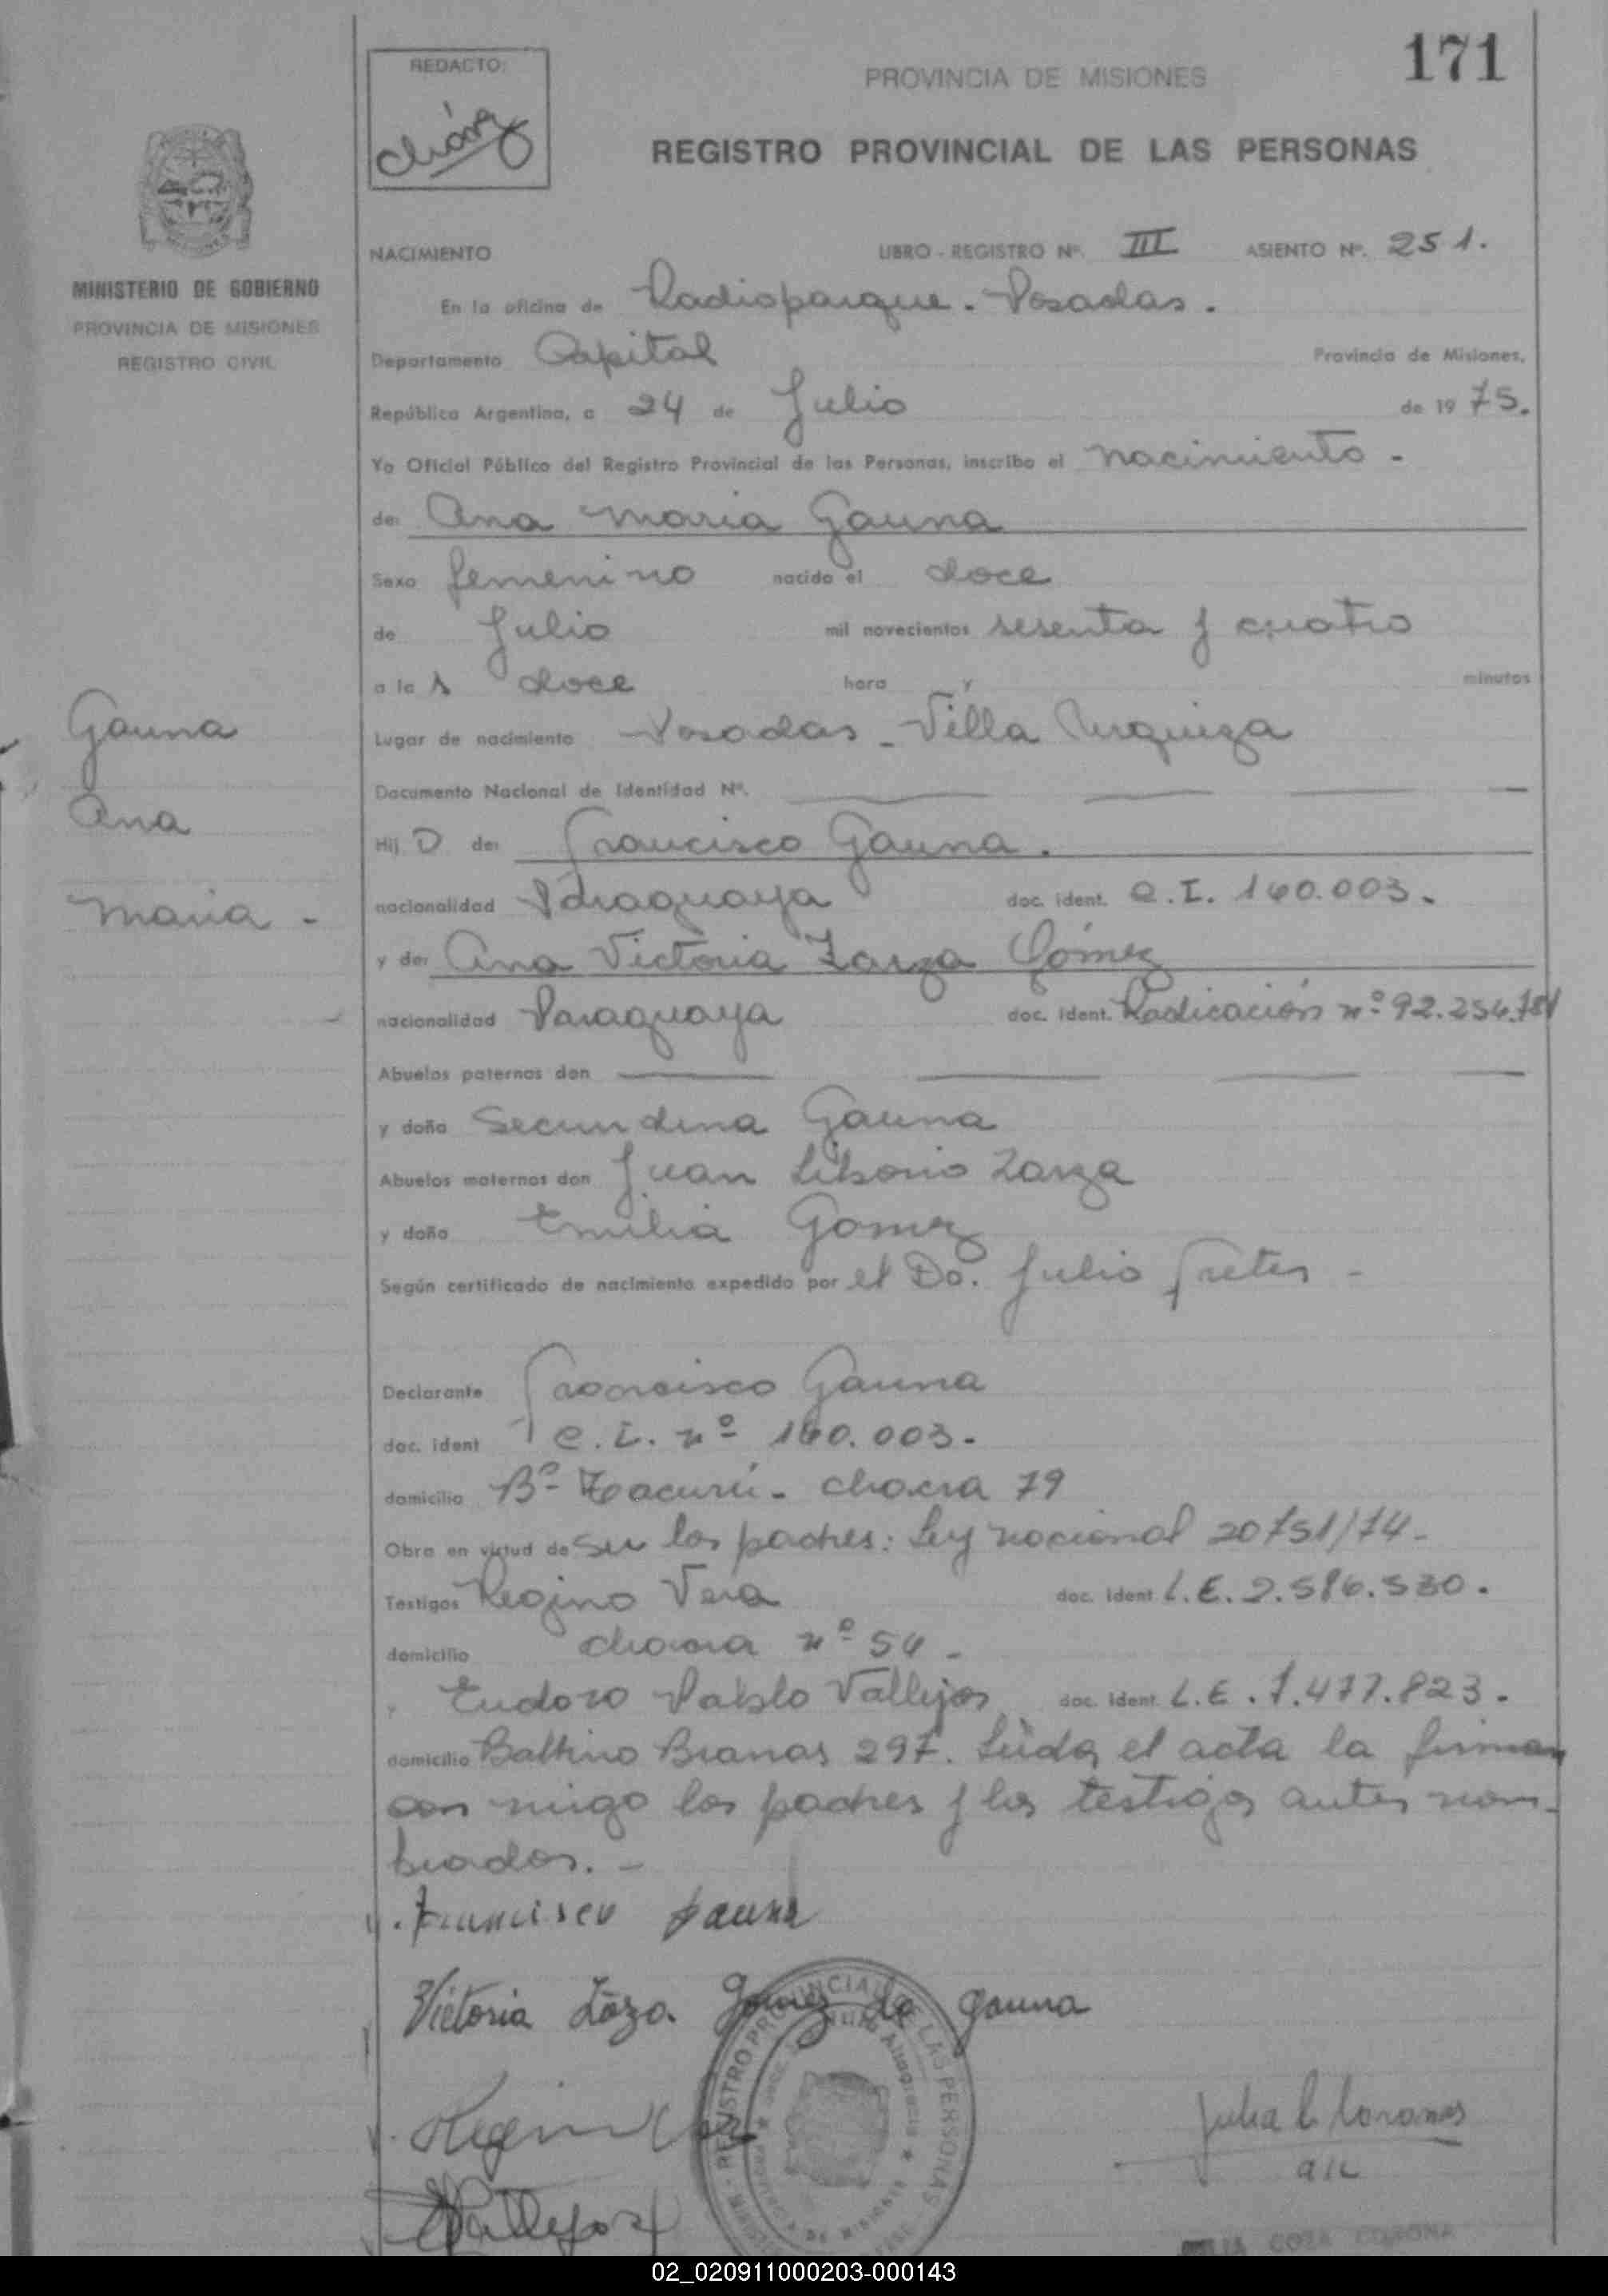 171
REDACTO:
PROVINCIA DE MISIONES
REGISTRO PROVINCIAL DE LAS PERSONAS
MINISTERIO DE GOBIERNO
PROVINCIA DE MISIONES
REGISTRO CIVIL
NACIMIENTO LIBRO - REGISTRO Nº. III ASIENTO Nº. 251.
En la oficina de Radioparque - Posadas.
Departamento Capital Provincia de Misiones,
República Argentina, a 24 de Julio de 19 75.
Yo Oficial Público del Registro Provincial de las Personas, inscribo el nacimiento -
de: Ana Maria Gauna
Sexo femenino nacido el doce
de Julio mil novecientos sesenta y cuatro
a la s doce hora y minutos
Lugar de nacimiento Posadas - Villa Urquiza
Documento Nacional de Identidad Nº.
Gauna
Ana
Maria -
Hij a de: Francisco Gauna.
nacionalidad Paraguaya doc. ident. C.I. 160.003.
y de: Ana Victoria Zarza Gómez
nacionalidad Paraguaya doc. ident. Radicación nº 92.254.781
Abuelos paternos don
y doña Secundina Gauna
Abuelos maternos don Juan Liborio Zarza
y doña Emilia Gomez
Según certificado de nacimiento expedido por el Do. Julio Fretes -
Declarante Francisco Gauna
doc. ident C.I. nº 160.003.
domicilio Bº Tacurú - chacra 79
Obra en virtud de ser los padres: Ley nacional 20751/74-
Testigos Regino Vera doc. ident L.E. 2.586.530.
domicilio chacra nº 54 -
y Eudoro Pablo Vallejos doc. ident L.E. 7.477.823.
domicilio Balbino Branas 297. Leida el acta la firman
con migo los padres y los testigos antes nom-
brados. -
Francisco Gauna
Victoria Zarza Gomez de Gauna
REGISTRO PROVINCIAL DE LAS PERSONAS
02_020911000203-000143